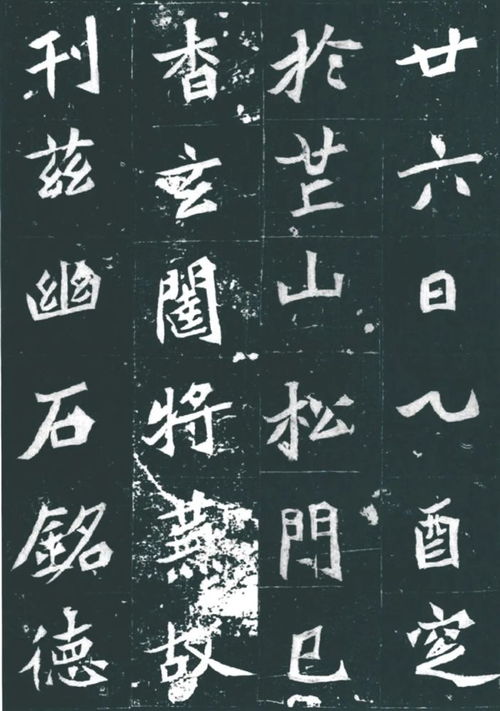 廿六日乙酉窆
於芒山松門已
杳玄閨將蕪故
刊茲幽石銘德